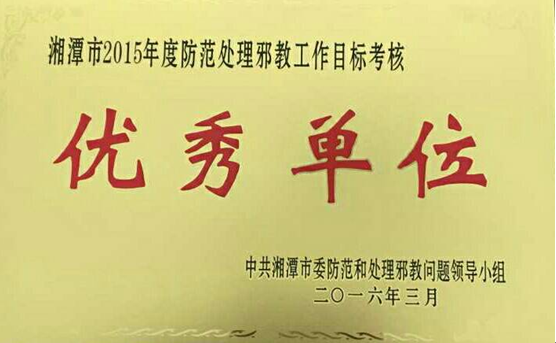 湘潭市2015年度防范处理邪教工作目标考核
优秀单位
中共湘潭市委防范和处理邪教问题领导小组
二〇一六年三月